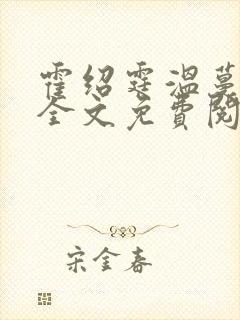 霍绍霆温蔓
全文免费阅
宋金春